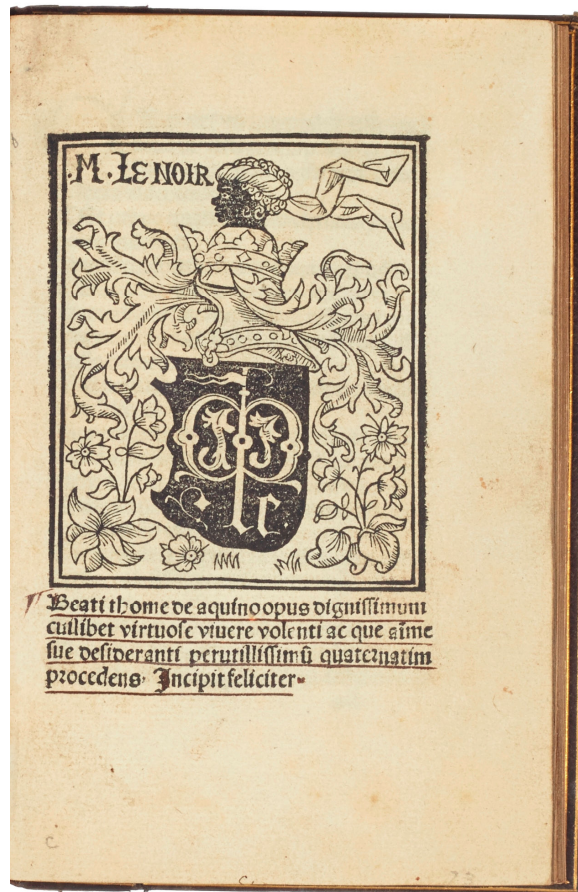 .M. LE NOIR
le.
Beati thome de aquino opus dignissimum
cuilibet virtuose viuere volenti ac que aīme
sue desideranti perutillissimū quaternatim
procedens. Incipit feliciter